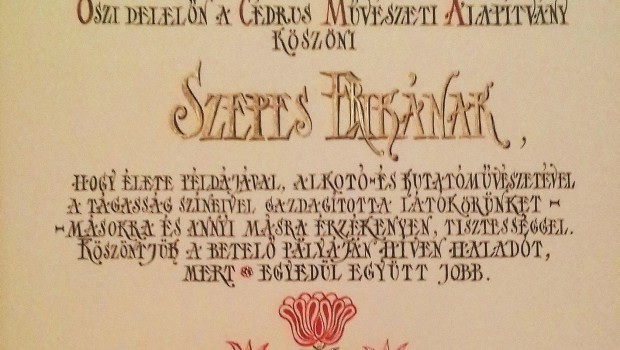 Őszi delelőn a Cédrus Művészeti Alapítvány
köszöni
Szepes Erikának,
hogy élete példájával, alkotó- és kutatóművészetével
a tágasság színeivel gazdagította látókörünket -
- másokra és annyi másra érzékenyen, tisztességgel.
Köszöntjük a betelő pályáján híven haladót,
mert egyedül együtt jobb.